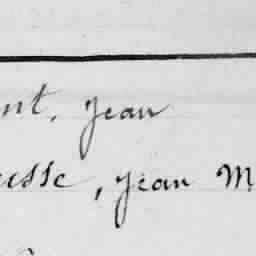 nt, Jean
usse, Jean M